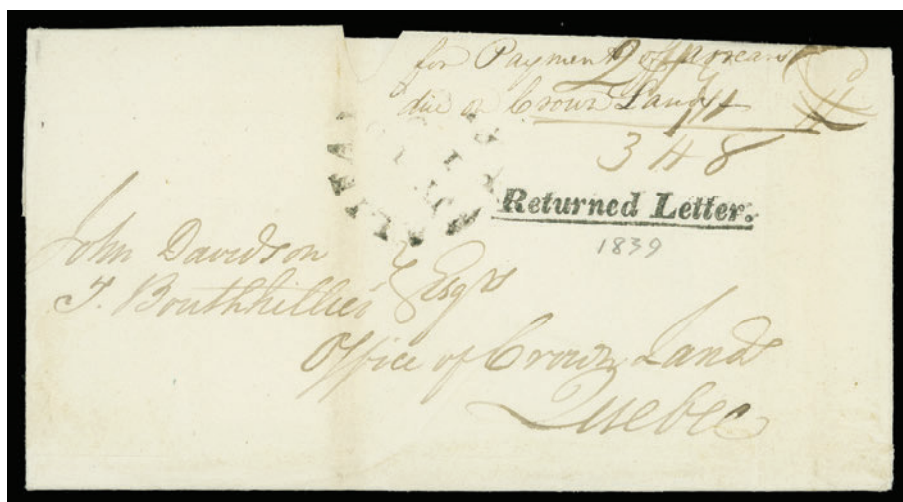 for Payment of Arrears
due on Crown Lands
348
Returned Letter.
1839
John Davidson
T. Bouthillier } Esqrs
Office of Crown Lands
Quebec